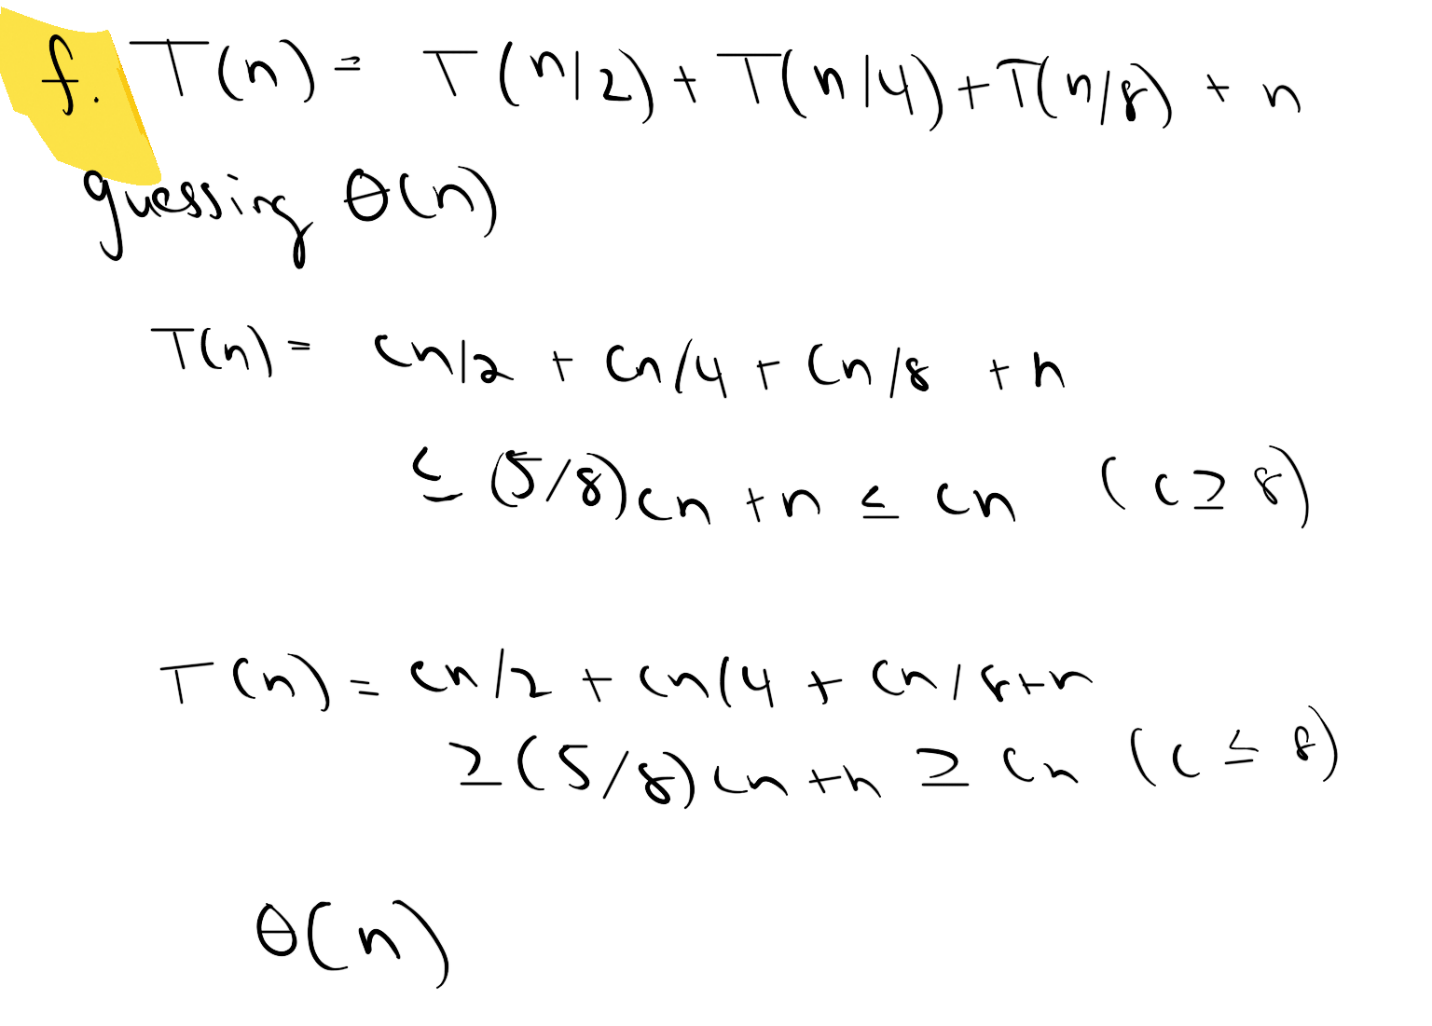 f. T(n) = T(n/2) + T(n/4) + T(n/8) + n
guessing θ(n)
T(n) = cn/2 + cn/4 + cn/8 + n
≤ (5/8)cn + n ≤ cn (c ≥ 8)
T(n) = cn/2 + cn/4 + cn/8 + n
≥ (5/8)cn + n ≥ cn (c ≤ 8)
θ(n)